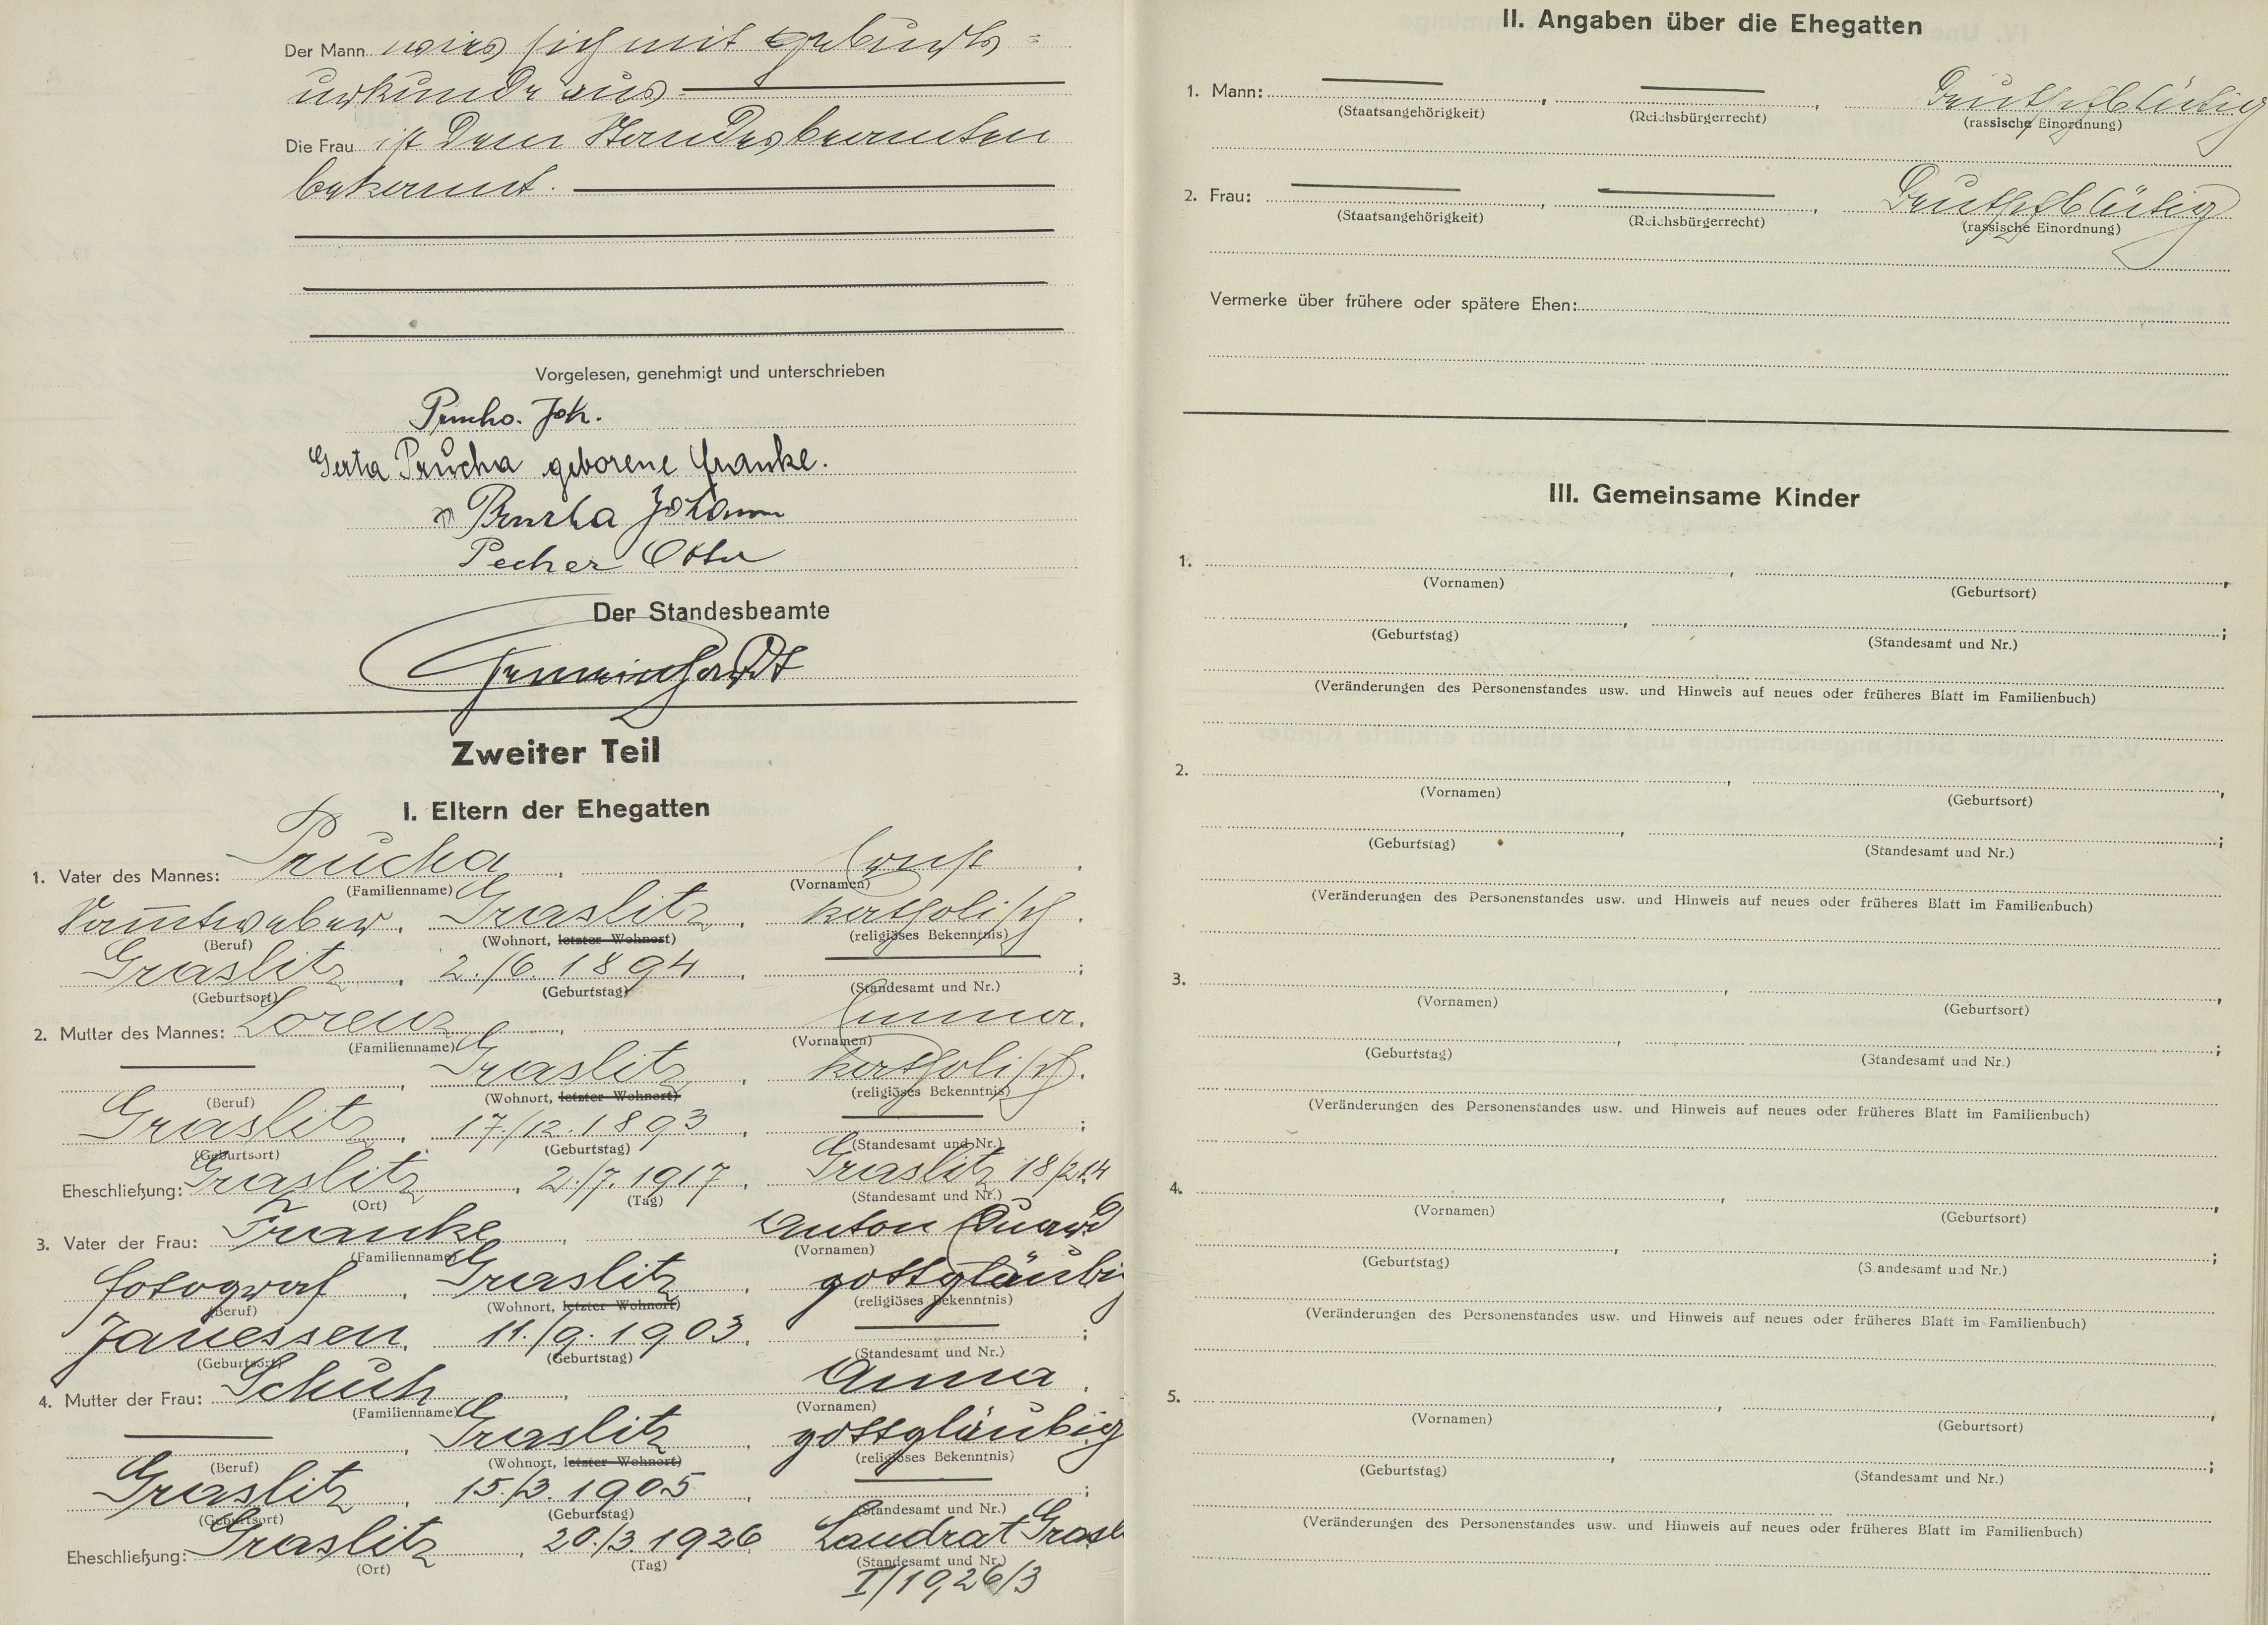 Der Mann wies sich mit Geburts-
urkunde aus
Die Frau ist dem Standesbeamten
bekannt.
Vorgelesen, genehmigt und unterschrieben
Prucha. Joh.
Gerta Průcha geborene Franke.
Prucha Johann
Pecher Otto
Der Standesbeamte
Zweiter Teil
I. Eltern der Ehegatten
1. Vater des Mannes: Prucha, Ernst.
(Familienname) (Vornamen)
Samtweber, Graslitz, katholisch.
(Beruf) (Wohnort, letzter Wohnort) (religiöses Bekenntnis)
Graslitz, 2./6. 1894, ;
(Geburtsort) (Geburtstag) (Standesamt und Nr.)
2. Mutter des Mannes: Lorenz, Emma.
(Familienname) (Vornamen)
Graslitz, katholisch.
(Beruf) (Wohnort, letzter Wohnort) (religiöses Bekenntnis)
Graslitz, 17./12. 1893, ;
(Geburtsort) (Geburtstag) (Standesamt und Nr.)
Eheschließung: Graslitz, 2./7. 1917, Graslitz 18/214
(Ort) (Tag) (Standesamt und Nr.)
3. Vater der Frau: Franke, Anton Eduard
(Familienname) (Vornamen)
Fotograf, Graslitz, gottgläubig
(Beruf) (Wohnort, letzter Wohnort) (religiöses Bekenntnis)
Janessen, 11./9. 1903, ;
(Geburtsort) (Geburtstag) (Standesamt und Nr.)
4. Mutter der Frau: Schuh, Anna.
(Familienname) (Vornamen)
Graslitz, gottgläubig
(Beruf) (Wohnort, letzter Wohnort) (religiöses Bekenntnis)
Graslitz, 15./3. 1905, ;
(Geburtsort) (Geburtstag) (Standesamt und Nr.)
Eheschließung: Graslitz, 20./3. 1926 Landrat Grasl
(Ort) (Tag) (Standesamt und Nr.)
I/1926/3
II. Angaben über die Ehegatten
1. Mann: , , Deutschblütig
(Staatsangehörigkeit) (Reichsbürgerrecht) (rassische Einordnung)
2. Frau: , , Deutschblütig
(Staatsangehörigkeit) (Reichsbürgerrecht) (rassische Einordnung)
Vermerke über frühere oder spätere Ehen:
III. Gemeinsame Kinder
1. , ,
(Vornamen) (Geburtsort)
, ;
(Geburtstag) (Standesamt und Nr.)
(Veränderungen des Personenstandes usw. und Hinweis auf neues oder früheres Blatt im Familienbuch)
2. , ,
(Vornamen) (Geburtsort)
, ;
(Geburtstag) (Standesamt und Nr.)
(Veränderungen des Personenstandes usw. und Hinweis auf neues oder früheres Blatt im Familienbuch)
3. , ,
(Vornamen) (Geburtsort)
, ;
(Geburtstag) (Standesamt und Nr.)
(Veränderungen des Personenstandes usw. und Hinweis auf neues oder früheres Blatt im Familienbuch)
4. , ,
(Vornamen) (Geburtsort)
, ;
(Geburtstag) (Standesamt und Nr.)
(Veränderungen des Personenstandes usw. und Hinweis auf neues oder früheres Blatt im Familienbuch)
5. , ,
(Vornamen) (Geburtsort)
, ;
(Geburtstag) (Standesamt und Nr.)
(Veränderungen des Personenstandes usw. und Hinweis auf neues oder früheres Blatt im Familienbuch)